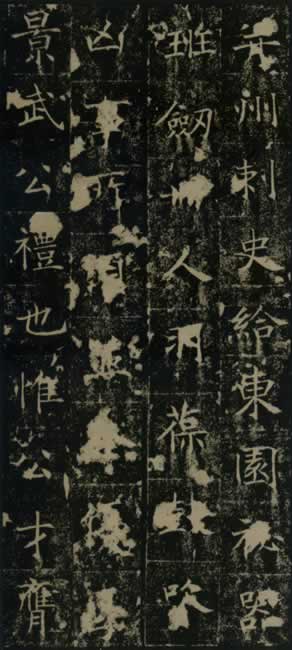 并州刺史給東園祕器
班劔卌人羽葆鼓吹
凶事所須
景武公禮也惟公才膺